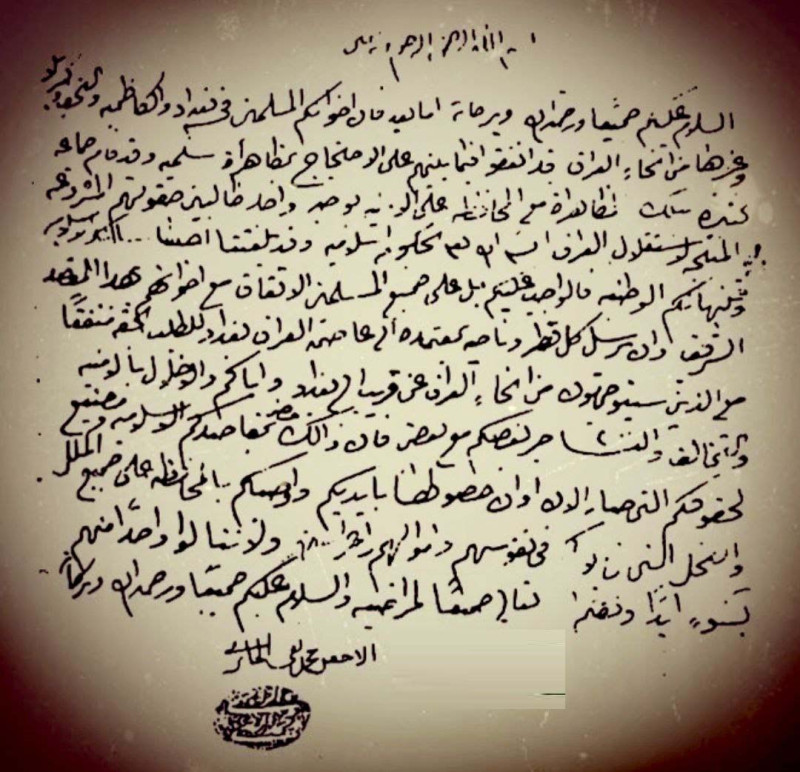 بسم الله الرحمن الرحيم
السلام عليكم جميعا ورحمة الله وبركاته اما بعد فان اخوانكم المسلمين في بغداد والكاظمية والنجف وكربلاء
وغيرها من انحاء العراق قد اتفقوا فيما بينهم على الاحتجاج بمظاهرة سلمية وقد قام جماعة
كثيرة بتلك المظاهرة مع المحافظة على الامنية بوجه واحد طالبين حقوقهم المشروعة
المنتجة لاستقلال العراق ان شاء الله بحكومة اسلامية وقد بلغتنا
الوطنية فالواجب عليكم بل على جميع المسلمين الاتفاق مع اخوانهم بهذا المقصد
الشريف وان يرسل كل قطر وناحية لمعتمده الى عاصمة العراق بغداد للطلب بحقه متفقا
مع الذين سيتوجهون من انحاء العراق عن قريب الى بغداد واياكم والاخلال بالامنية
والتخالف والتشاجر بعضكم مع بعض فان ذلك مضر بمقاصدكم الاسلامية ومضيع
لحقوقكم التي صار الان اوان حصولها بايديكم واوصيكم بالمحافظة على جميع الملل
والنحل التي في بلادكم في نفوسهم واموالهم واعراضهم ولا تنالوا واحدا منهم
بسوء ابدا وفقنا الله تعالى جميعا لمراضيه والسلام عليكم جميعا ورحمة الله وبركاته
الاحقر محمد تقي الحائري الشيرازي